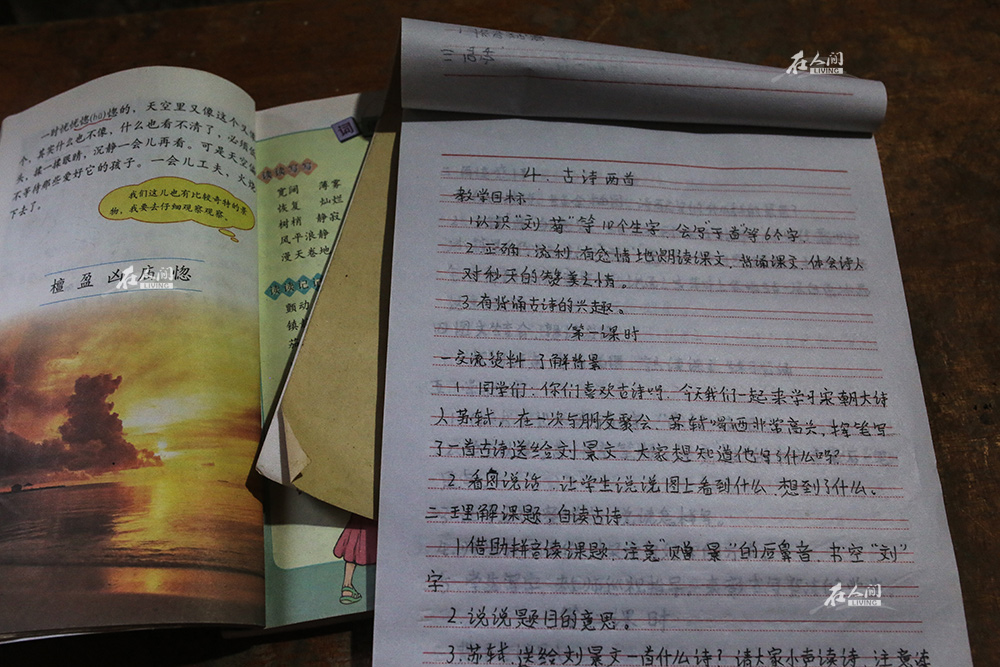 一时恍恍惚(hū)惚的，天空里又像这个又
个，其实什么也不像，什么也看不清了，必须
头，揉一揉眼睛，沉静一会儿再看。可是天空
不等待那些爱好它的孩子。一会儿工夫，火烧
下去了。
我们这儿也有比较奇特的景
物，我要去仔细观察观察。
檀 盈 凶 庙 惚
词
读读写写
宽阔 薄雾
恢复 灿烂
树梢 静寂
风平浪静
漫天卷地
读读记记
颤动
镇
在人间
LIVING
在人间
LIVING
4、古诗两首
教学目标
1.认识“刘 菊”等10个生字，会写“于首”等6个字.
2.正确、流利、有感情地朗读课文，背诵课文，体会诗人
对秋天的赞美之情。
3.有背诵古诗的兴趣。
第一课时
一交流资料，了解背景
1.同学们，你们喜欢古诗吗，今天我们一起来学习宋朝大诗
人苏轼，在一次与朋友聚会，苏轼喝酒非常高兴，挥笔写
了一首古诗送给刘景文，大家想知道他写了什么吗？
2.看图说话，让学生说说图上看到什么，想到了什么。
二、理解课题，自读古诗.
1.借助拼音读课题，注意“赠 景”的后鼻音，书空“刘”
字
2.说说题目的意思。
3.苏轼送给刘景文一首什么诗？请大家小声读诗，注意读
在人间
LIVING